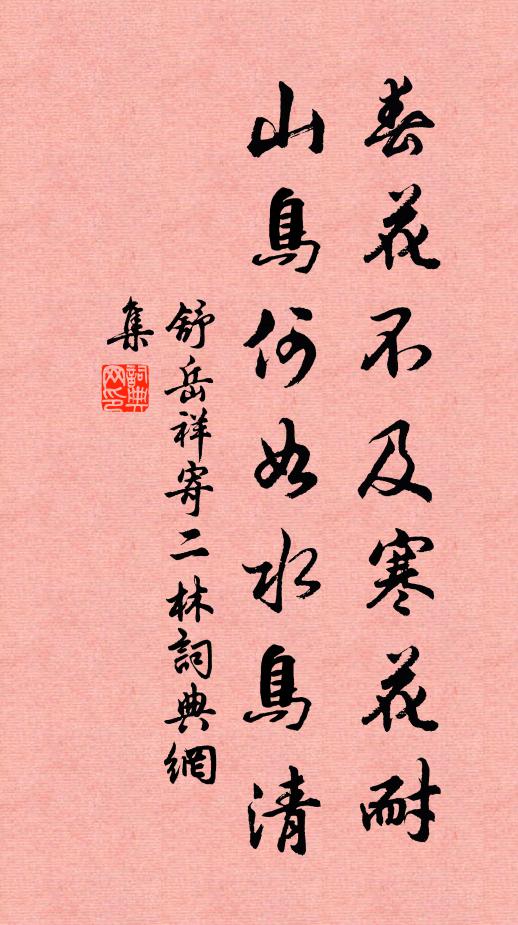 春花不及寒花耐
山鳥何如水鳥清
舒岳祥寄二林詞典網
集
詞典網印